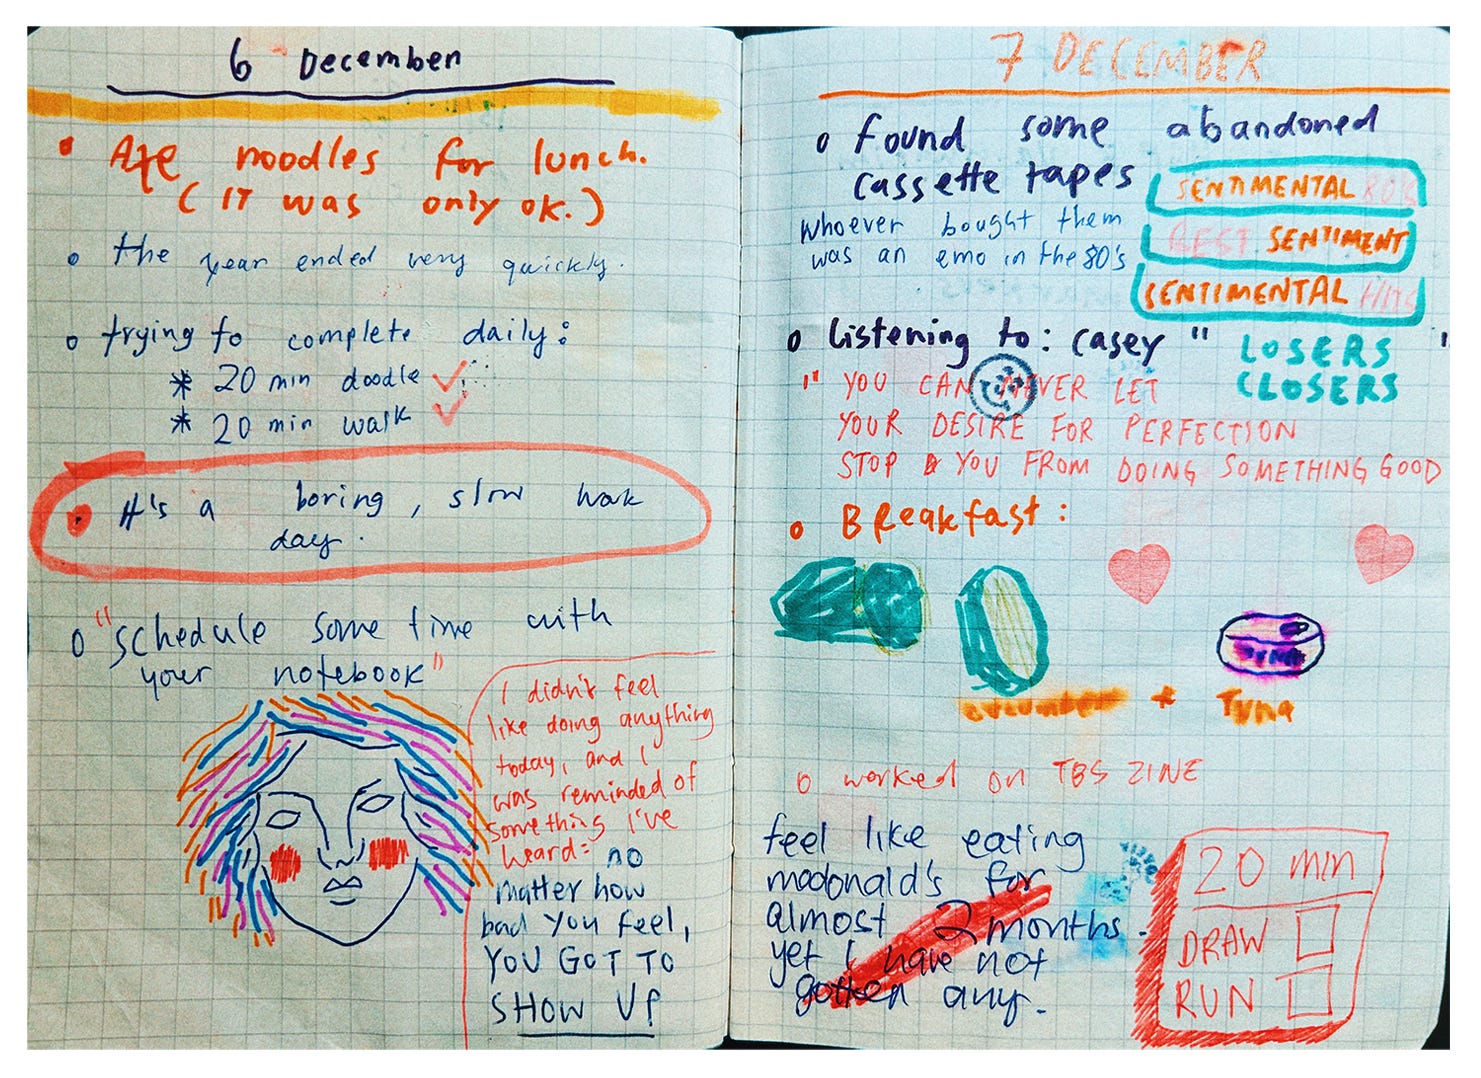 6 December
Ate noodles for lunch.
(IT was only ok.)
the year ended very quickly.
trying to complete daily:
* 20 min doodle
* 20 min walk
It's a boring, slow work
day.
"schedule some time with
your notebook"
I didn't feel
like doing anything
today, and I
was reminded of
something I've
heard: no
matter how
bad you feel,
YOU GOT TO
SHOW UP
7 DECEMBER
found some abandoned
cassette tapes
whoever bought them
was an emo in the 80's
SENTIMENTAL 80's
BEST SENTIMENT
SENTIMENTAL HITS
Listening to: Casey "LOSERS
CLOSERS"
"YOU CAN NEVER LET
YOUR DESIRE FOR PERFECTION
STOP YOU FROM DOING SOMETHING GOOD
Breakfast:
TUNA
cucumber + Tuna
worked on TBS ZINE
feel like eating
mcdonald's for
almost 2 months.
yet I have not
gotten any.
20 min
DRAW
RUN